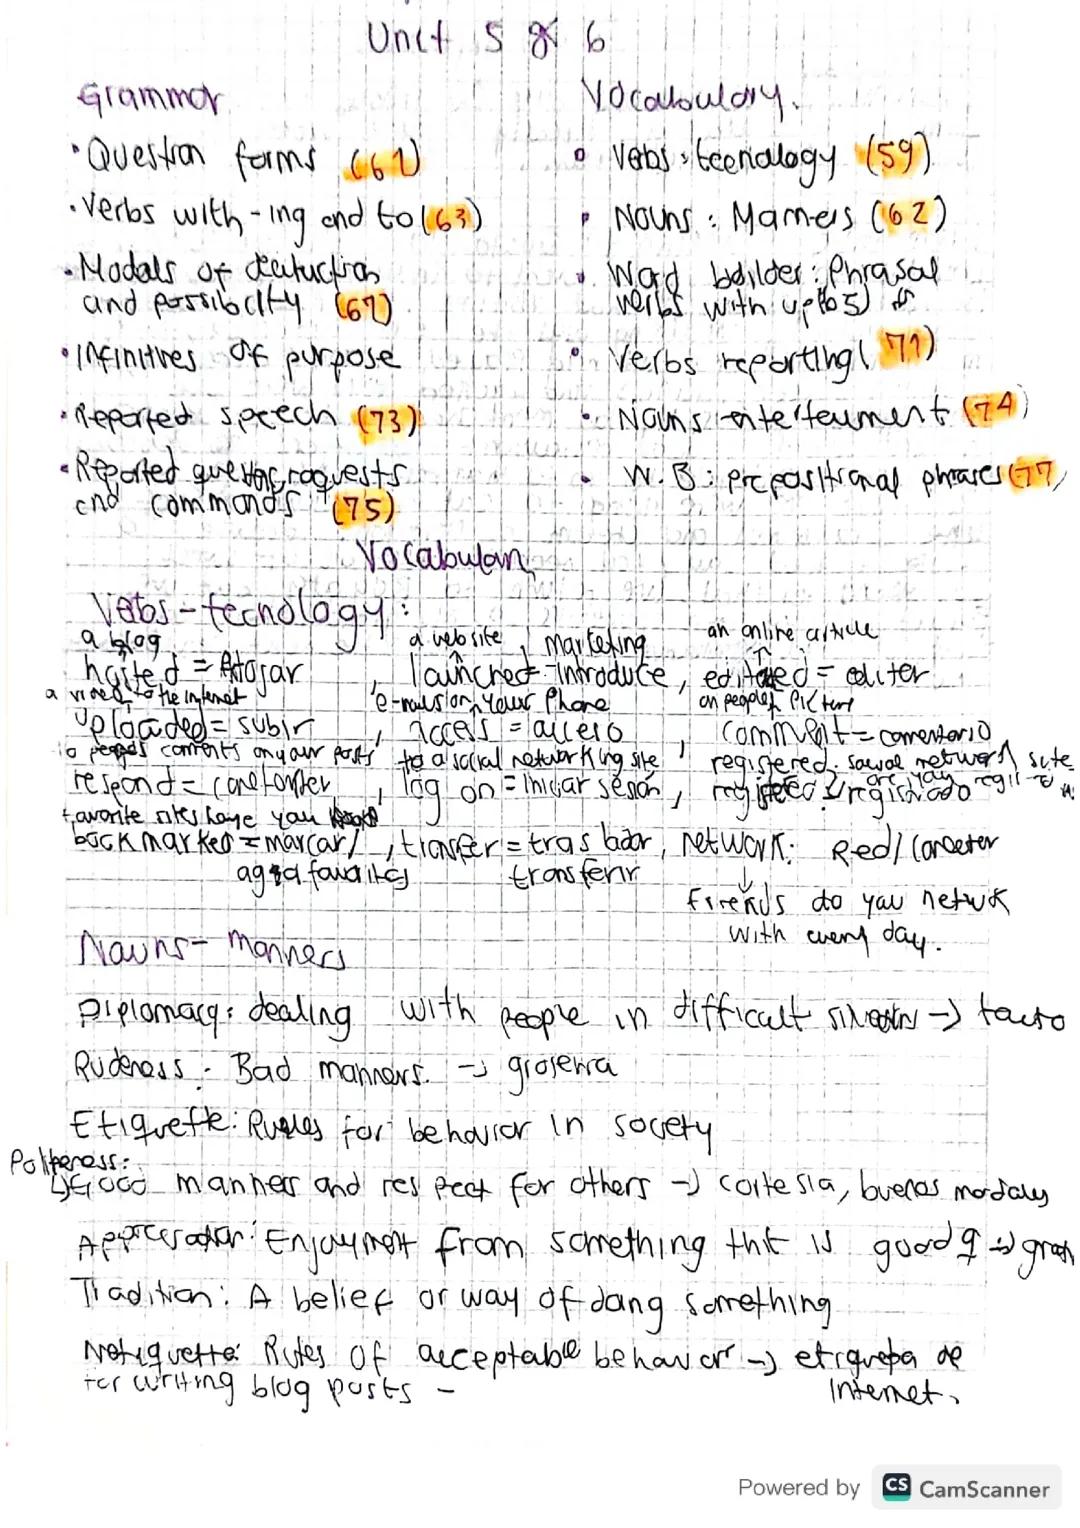 Unit 5 & 6
Grammar
• Question forms (61)
• Verbs with -ing and to (63)
• Modals of deatuction
and possibility (67)
• Infinitives of purpose
• Reported speech (73)
• Reported requests
and commands (75)
Vocabulary.
Verbs: tecnology (59)
Nouns: Manners (62)
Word builder: Phrasal
verbs with up
Verbs reporting (71)
Nouns (74)
W.B: prepositional phrases (77)
Vocabulary
Verbs - tecnology:
a blog
a website, marketing
an online article
hosted = Alojar
, launched - Introduce, edited = editer
a video to the internet
your Phone
on people's Picture
Uploaded = subir
, access = acceso
, comment = comentario
to peoples coments on your posts
to a social networking site
registered. social network site
respond = 
, log on = iniciar sesión,
registrado
favorite sites have you
bookmarked = marcar/
, transfer = trasladar, network: Red/
transferir
friends do you network
with every day.
Nouns - Manners
Diplomacy: dealing with people in difficult -> tacto
Rudeness: Bad manners. -> groseria
Etiquette: Rules for behavior in society
Politeness:
Good manners and respect for others -> cortesia, buenos modales
Enjoyment from something that is good
Tradition: A belief or way of doing something
Netiquette: Rules of acceptable behavior -> de
for writing blog posts -
Internet.
Powered by CS CamScanner